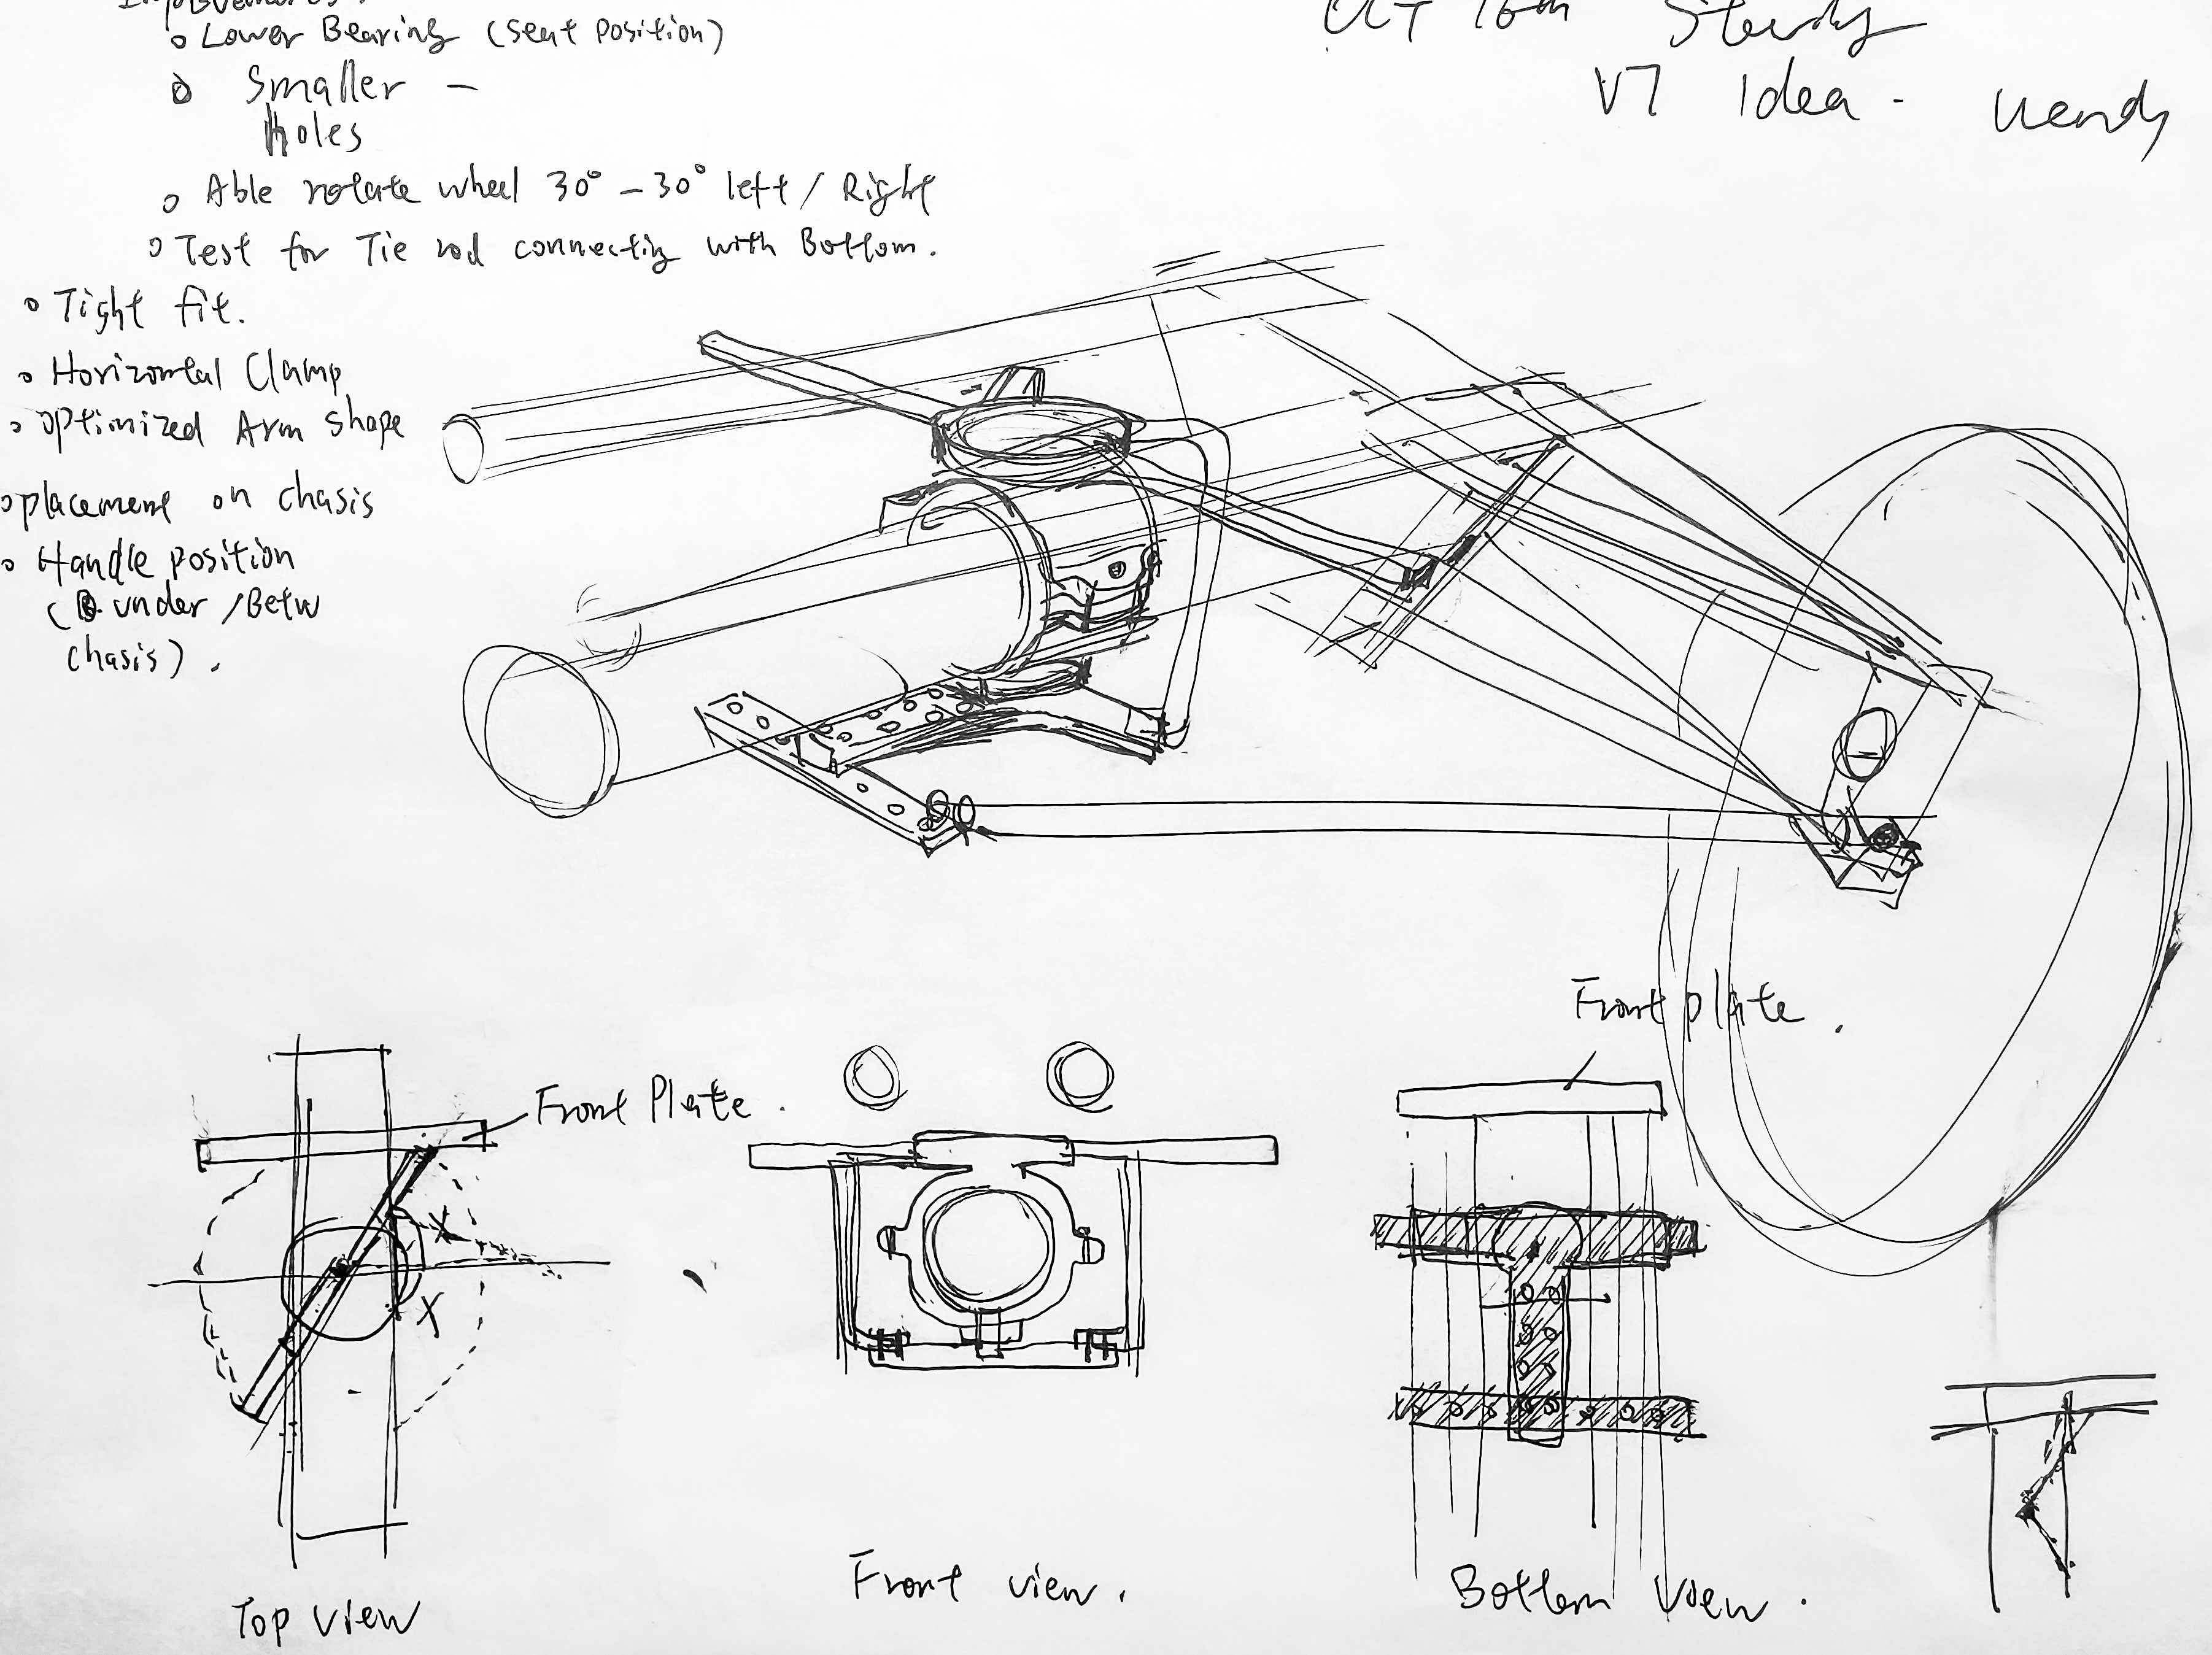 Improvements:
o Lower Bearing (seat position)
o Smaller –
Holes
o Able rotate wheel 30° – 30° left / Right
o Test for Tie rod connecting with Bottom.
o Tight fit.
o Horizontal Clamp
o optimized Arm shape
o placement on chasis
o Handle position
( under / Betw
chasis).
Oct 16th Study
V7 Idea -
Front plate.
Front Plate.
X
X
Top view
Front view.
Bottom View.